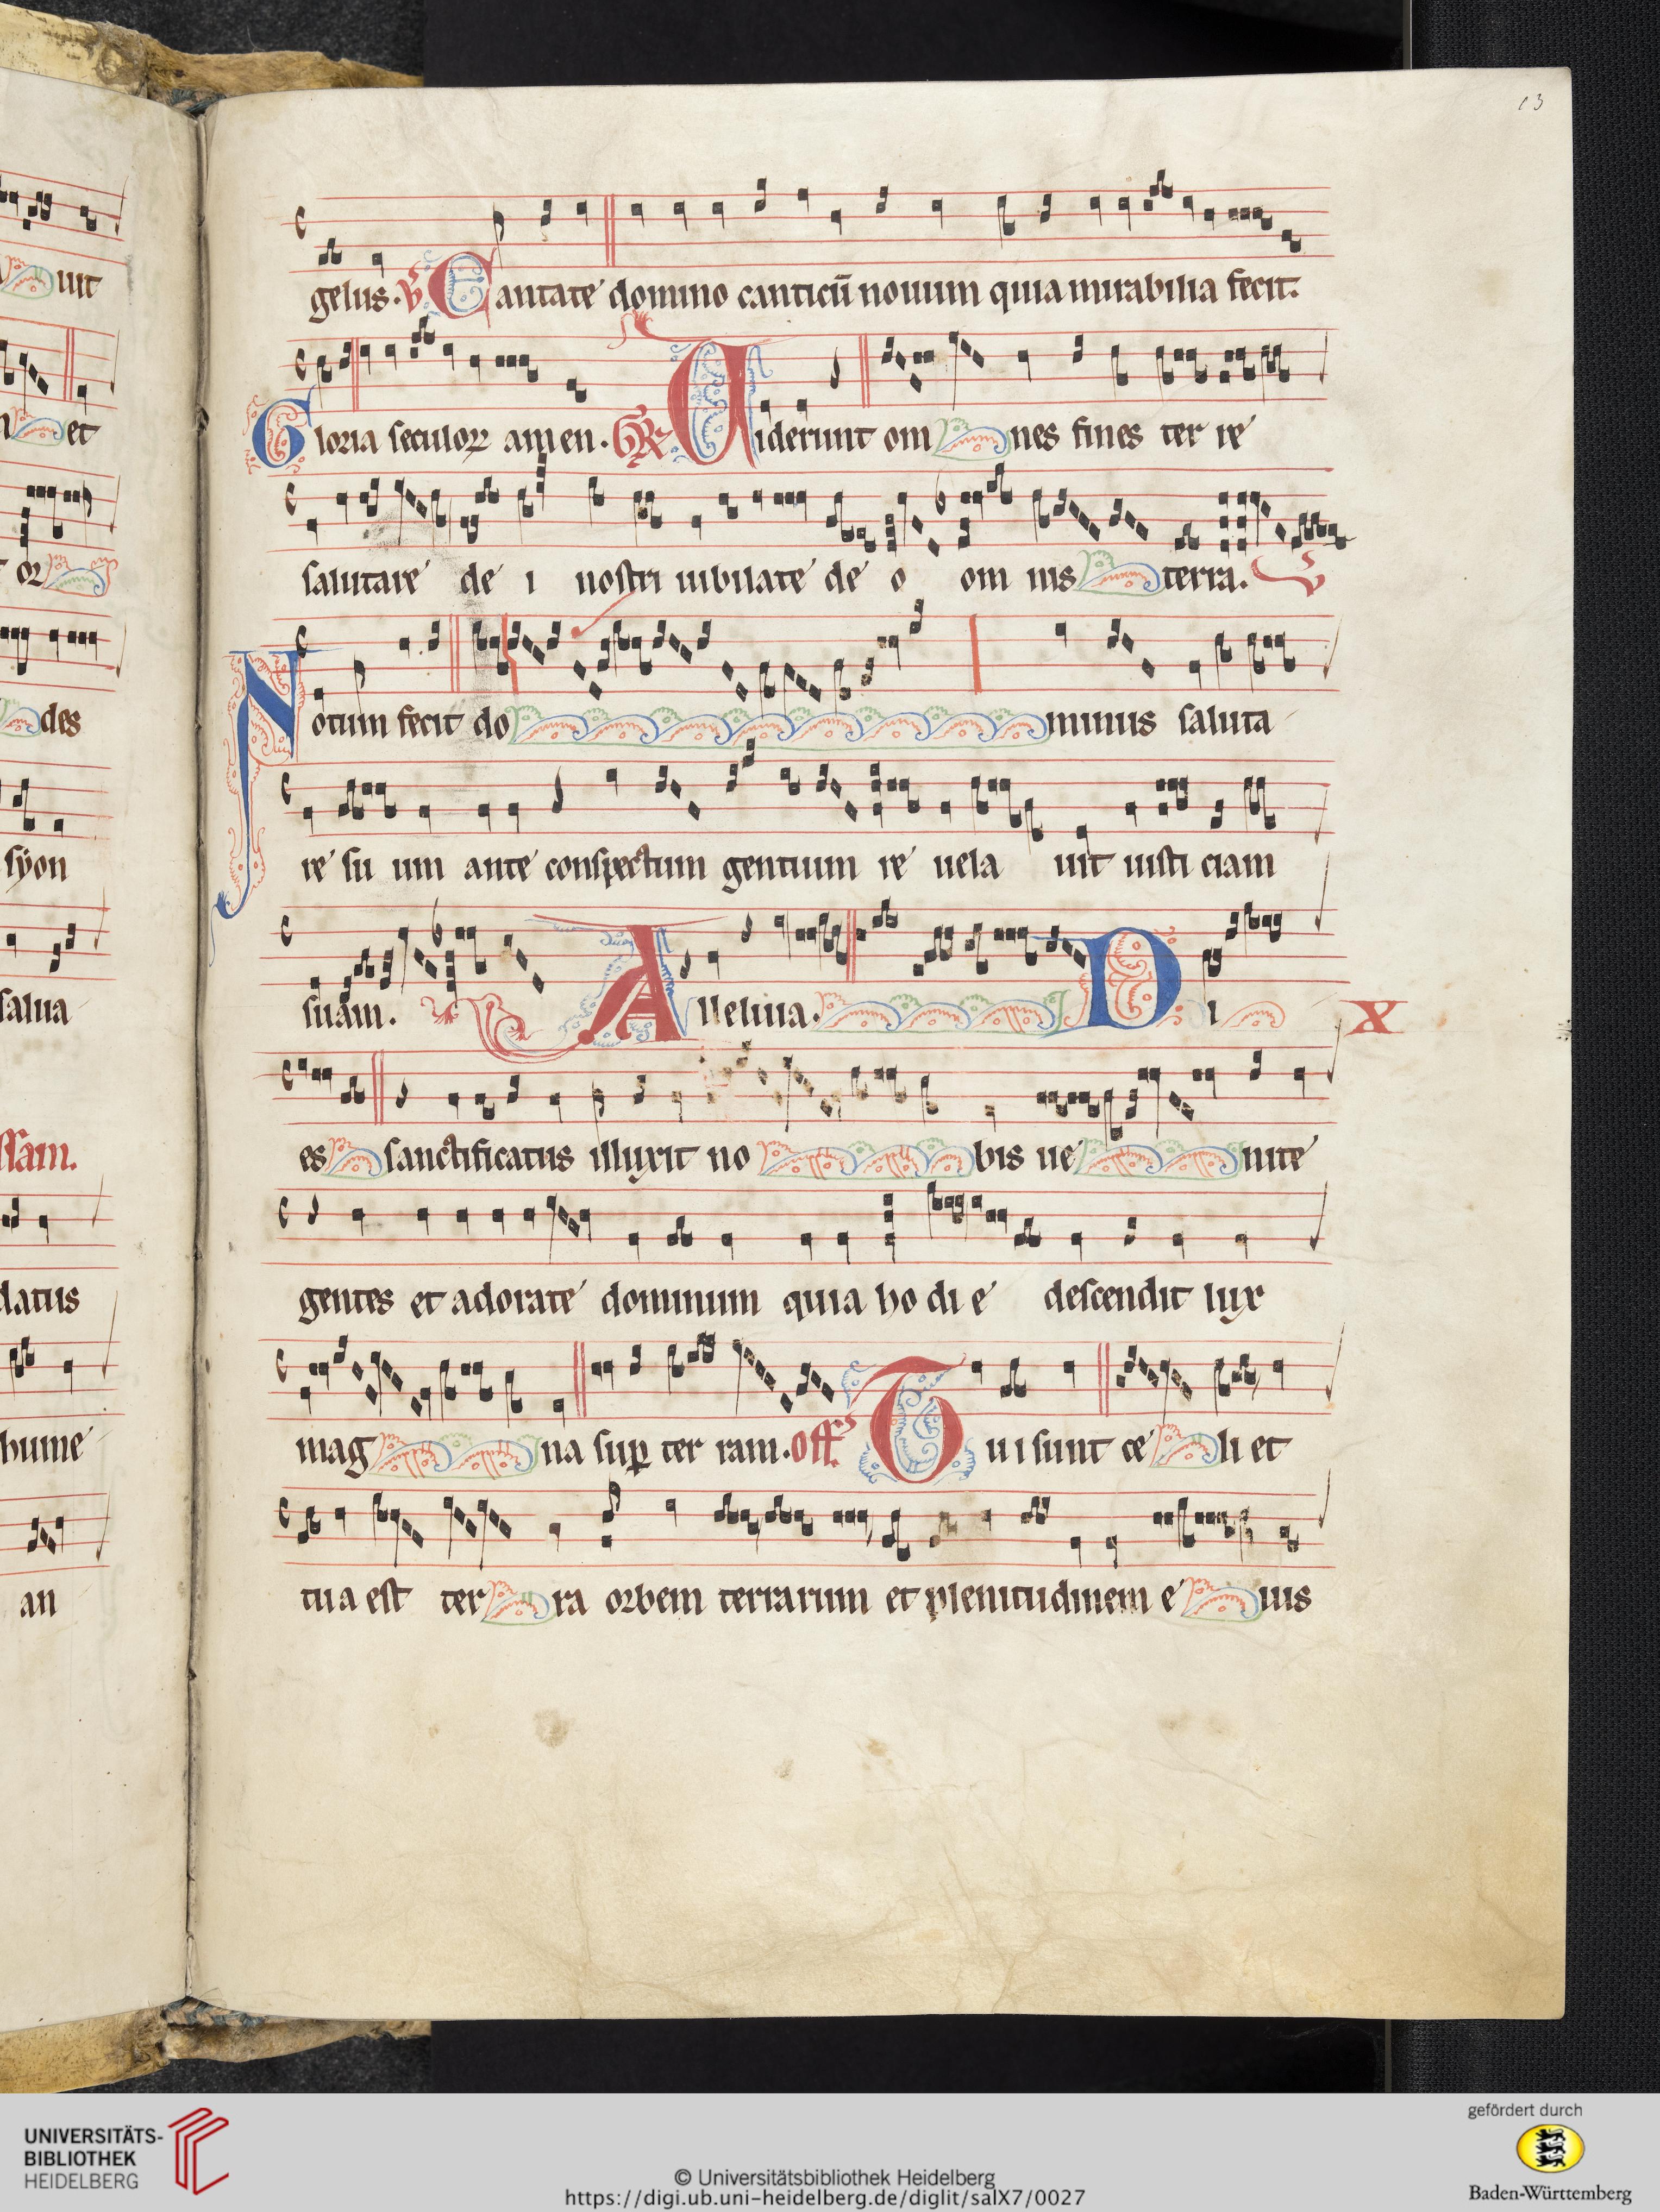 13
uit
et
or
des
syon
salua
ssam.
datus
hume
an
gelus. V Cantate domino canticū nouum quia mirabilia fecit.
Gloria seculoꝝ amen. GR Uiderunt om nes fines ter re
salutare de i nostri iubilate de o om nis terra. V
Notum fecit do minus saluta
re su um ante conspectum gentium re uela uit iusti ciam
suam. Alleluia. D i
X
es sanctificatus illuxit no bis ue nite
gentes et adorate dominum quia ho di e descendit lux
mag na sup ter ram. Off. Tu i sunt ce li et
tu a est ter ra orbem terrarum et plenitudinem e ius
UNIVERSITÄTS-
BIBLIOTHEK
HEIDELBERG
© Universitätsbibliothek Heidelberg
https://digi.ub.uni-heidelberg.de/diglit/salX7/0027
gefördert durch
Baden-Württemberg